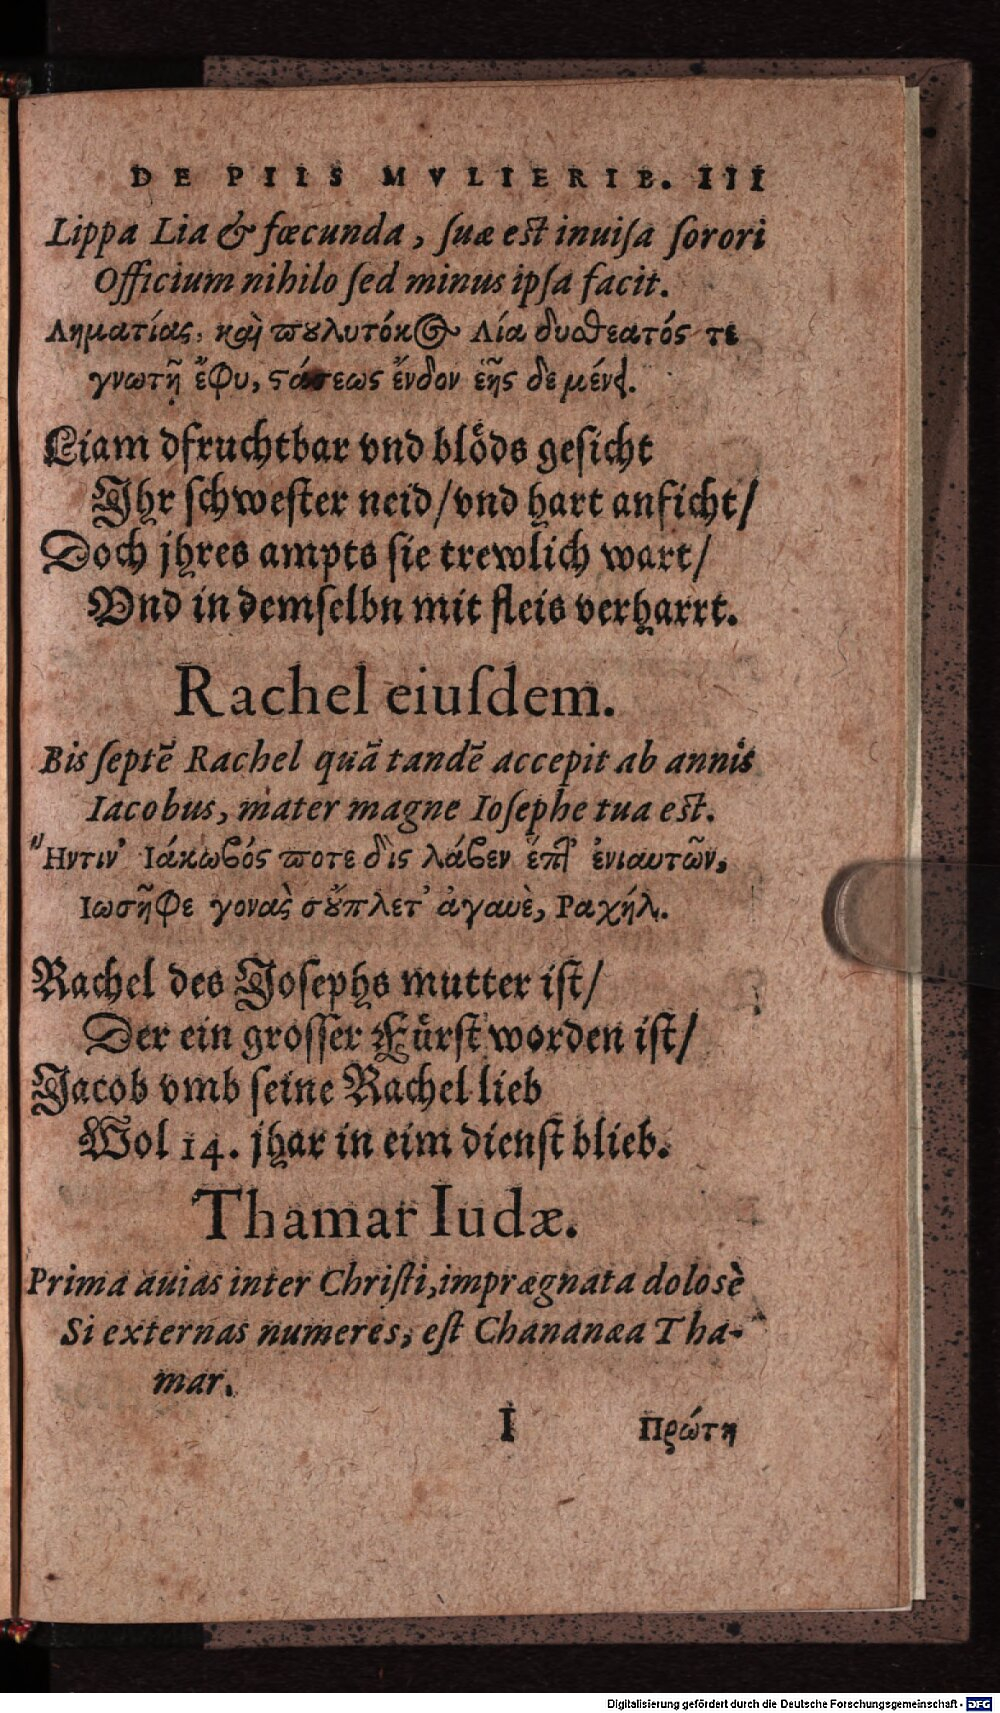 DE PIIS MVLIERIB. III
Lippa Lia & fœcunda, ſuæ eſt inuiſa ſorori
Officium nihilo ſed minus ipſa facit.
Ληματίας, καὶ πουλυτόκος Λία δυσθεατός τε
γνωτῇ ἔφυ, στάσεως ἔνδον ἑῆς δὲ μένει.
Liam dfruchtbar vnd blöds geſicht
Jhr ſchweſter neid/vnd hart anficht/
Doch jhres ampts ſie trewlich wart/
Vnd in demſelbn mit fleis verharrt.
Rachel eiuſdem.
Bis ſeptē Rachel quā tandē accepit ab annis
Iacobus, mater magne Ioſephe tua eſt.
Ἥντιν' Ιάκωβός ποτε δὶς λάβεν ἑπτ' ἐνιαυτῶν,
Ιωσῆφε γονὰς σοὔπλετ' ἀγαυὲ, Ραχήλ.
Rachel des Joſephs mutter iſt/
Der ein groſſer Fürſt worden iſt/
Jacob vmb ſeine Rachel lieb
Wol 14. jhar in eim dienſt blieb.
Thamar Iudæ.
Prima auias inter Chriſti, imprægnata dolosè
Si externas numeres, eſt Chananæa Tha-
mar.
I Πρώτη
Digitalisierung gefördert durch die Deutsche Forschungsgemeinschaft - DFG